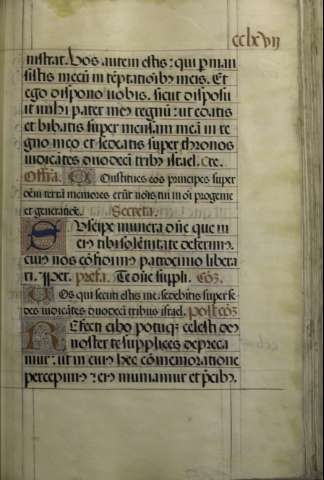 cclxvij
nistrat. Vos autem estis: qui ꝑman
sistis mecū in tēptatiōibꝰ meis. Et
ego dispono vobis. sicut disposu
it mihi pater meꝰ regnū: ut edatis
et bibatis super mensam meā in re
gno meo et sedeatis super thronos
iudicātes duodecī tribꝰ israel. Cre.
Offia. Onstitues eos principes super
oēm terrā memores erūt noīs tui in oī progenie
et generatiōe. Secreta.
Uscipe munera dñe que in
eiꝰ tibi solēnitate deferimꝰ.
cuiꝰ nos cōfidimꝰ patrocinio libera
ri. ꝑ. Prefa. Te dñe suppli. Cōō.
Vos qui secuti estis me. sedebitis super se
des iudicātes duodecī tribus israel. Post cōō
Refecti cibo potuqꝫ celesti deꝰ
noster te supplices depreca
mur: ut in cuiꝰ hec cōmemoratione
percepimꝰ: eiꝰ muniamur et p̄cibꝰ.